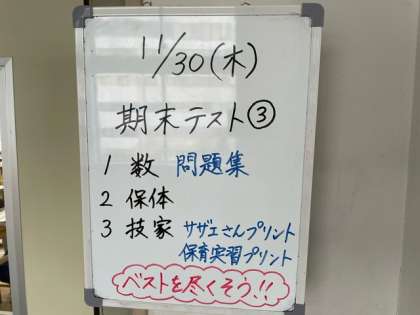 11/30(木)
期末テスト③
1 数 問題集
2 保体
3 技家 サザエさんプリント
保育実習プリント
ベストを尽くそう!!